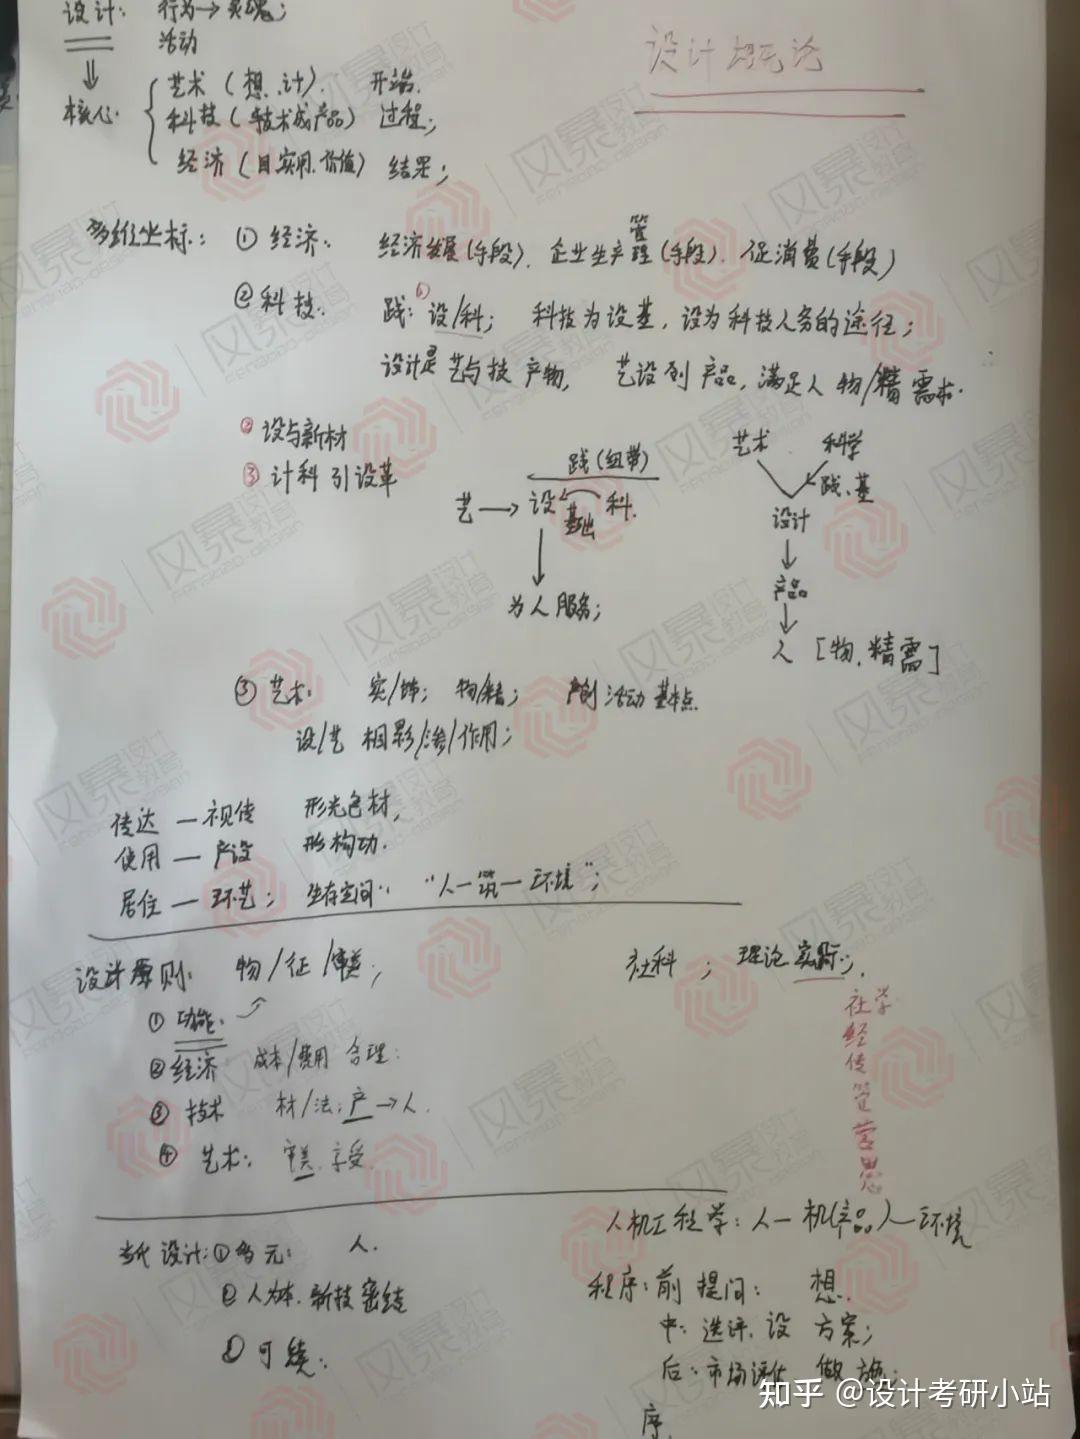 设计概论
设计: 行为→灵魂;
活动
核心: 艺术(想、计). 开端.
科技(技术成产品) 过程;
经济(目实用、价值) 结果;
多维坐标: ①经济: 经济发展(手段)、企业生产管理(手段)、促消费(手段)
②科技: 践:①设/科; 科技为设基,设为科技人务的途径;
设计是艺与技产物, 艺设到产品,满足人物/精需求.
②设与新材
③计科引设革
践(纽带)
艺→设 科.
基础
为人服务;
艺术 科学
践、基
设计
产品
人 [物、精需]
③艺术: 实/饰; 物/精; 产创活动基本点.
设/艺 相影/渗/作用;
传达—视传 形光色材,
使用—产设 形构功.
居住—环艺; 生存空间: “人—筑—环境”;
设计原则: 物/征/审美;
①功能:
②经济 成本/费用 合理:
③技术 材/法;产→人.
④艺术: 审美、享受
社科; 理论实际;
社学
经
传
管
营
思
当代设计:①多元: 人.
②人为本、新技密结
②可续:
人机工程学: 人—机(产品)—环境
程序:前 提问: 想.
中: 选评、设 方案;
后: 市场评估 做施;
序
知乎 @设计考研小站
风景设计教育
FENGJING DESIGN